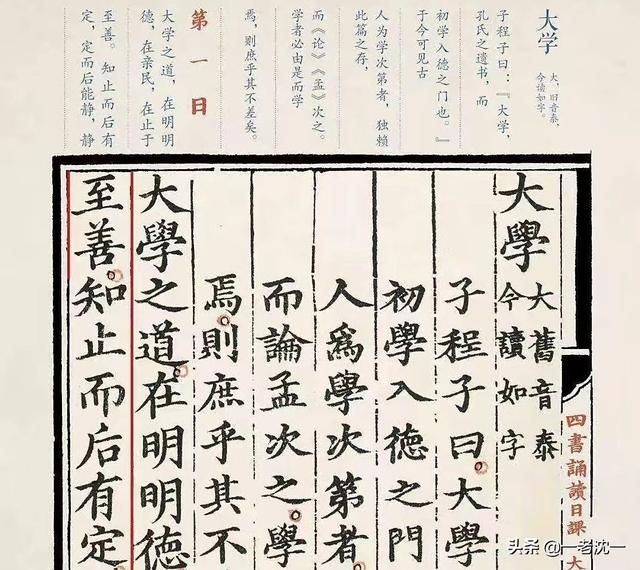 大学
大，旧音泰，
今读如字。
子程子曰：『大学，
孔氏之遗书，而
初学入德之门也。』
于今可见古
人为学次第者，独赖
此篇之存，
而《论》《孟》次之。
学者必由是而学
焉，则庶乎其不差矣。
第一日
大学之道，在明明
德，在亲民，在止于
至善。知止而后有
定，定而后能静，静
四書誦讀日課 大
大學
大舊音泰
今讀如字
子程子曰大學
初學入德之門
人爲學次第者
而論孟次之學
焉則庶乎其不
大學之道在明明德
至善知止而后有定
头条 @一老沈一